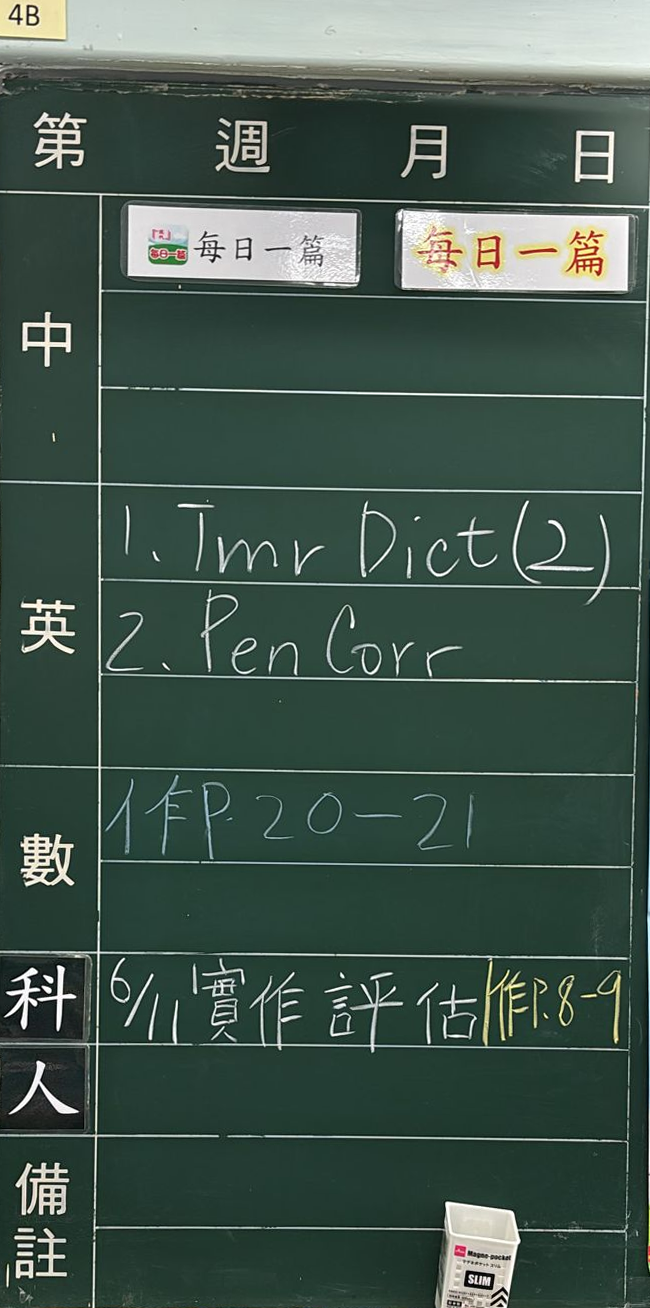 4B
第 週 月 日
中
每日一篇 每日一篇 每日一篇
英
1. Tmr Dict (2)
2. Pen Corr
數
作P. 20-21
科
6/11 實作評估 作P. 8-9
人
備註
Magne-pocket
SLIM